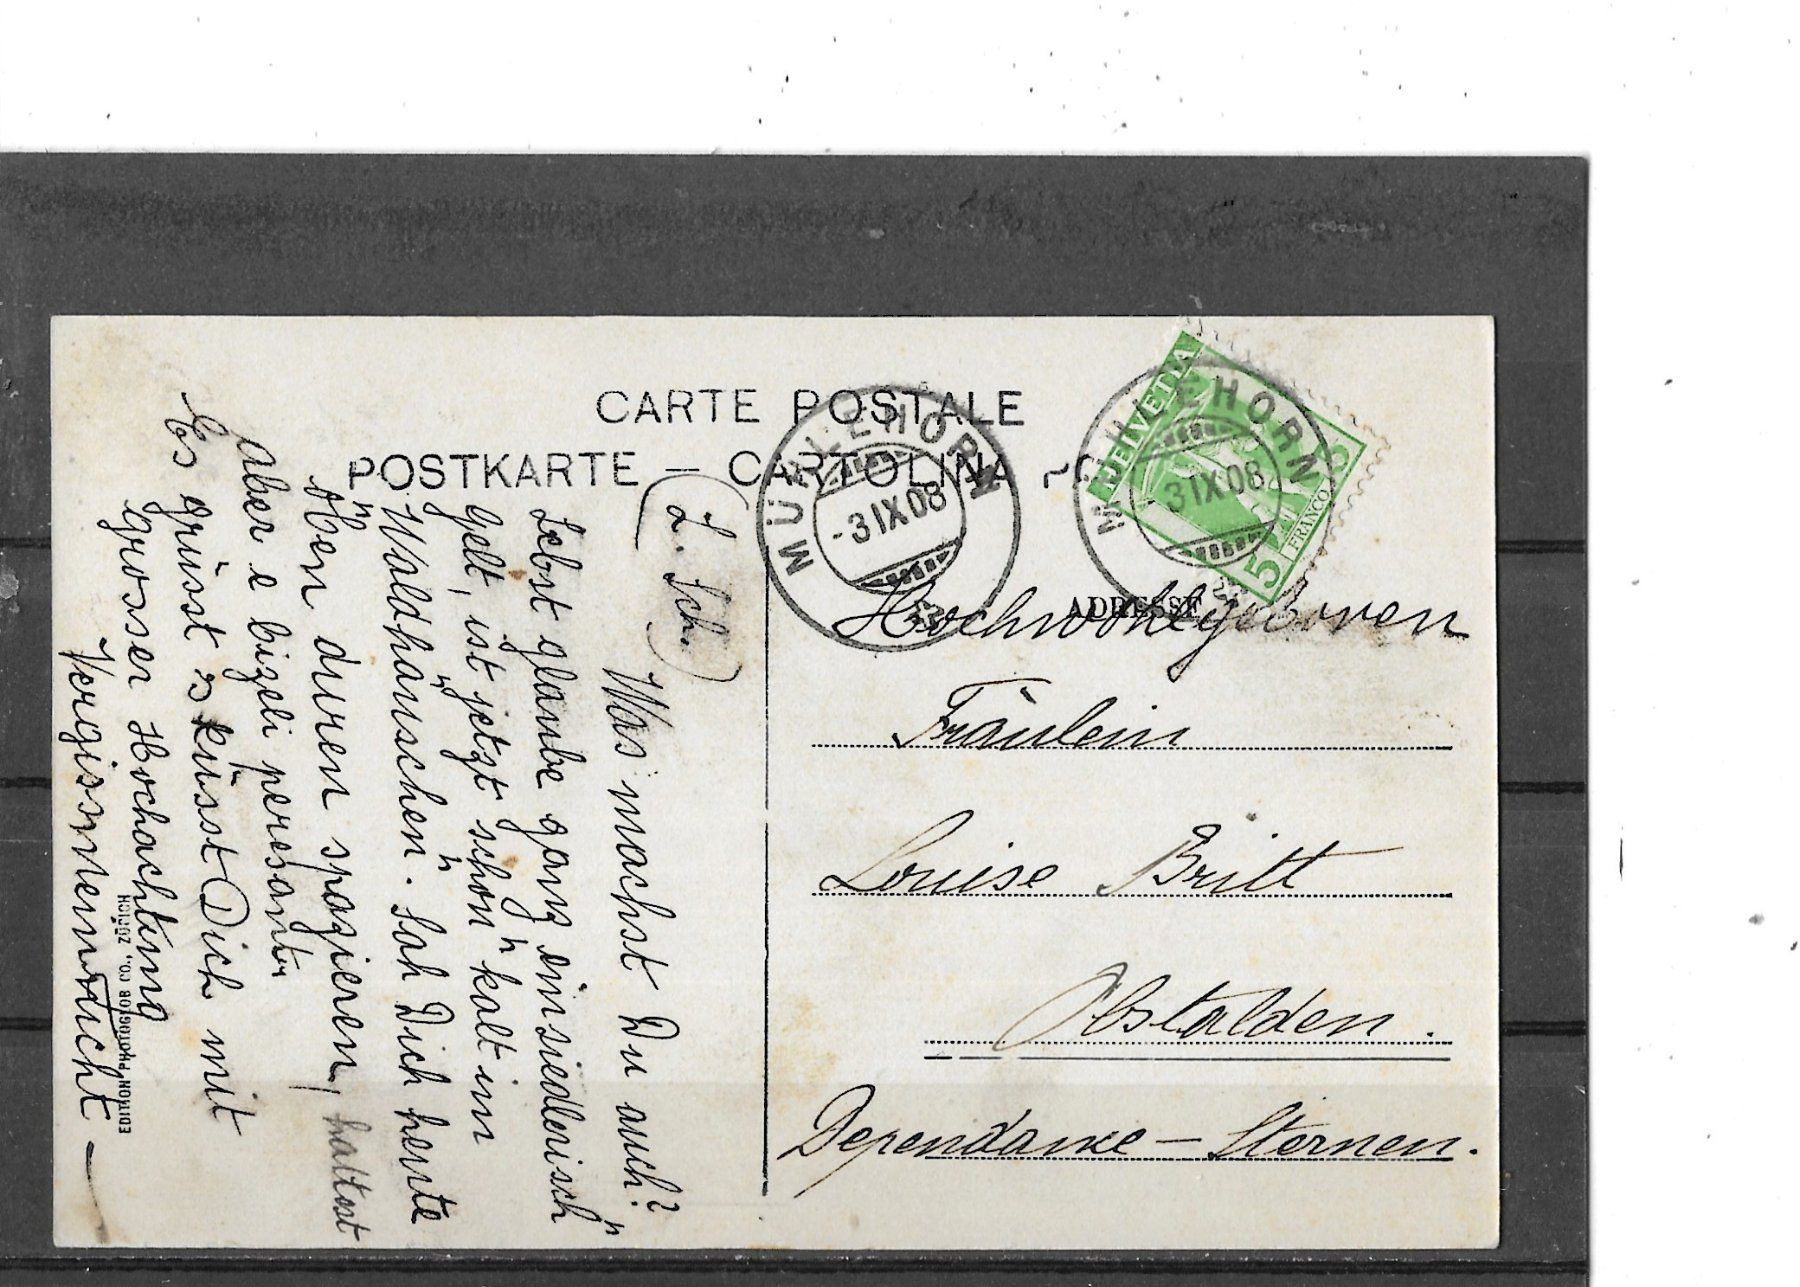 CARTE POSTALE
POSTKARTE — CARTOLINA
MÜHLEHORN
-3 IX 08
MÜHLEHORN
-3 IX 08
HELVETIA
5
FRANCO
ADRESSE
Hochwohlgeboren
Fräulein
Louise Britt
Obstalden.
Dependance – Sternen.
(L. Sch.)
Was machst Du auch?
Lebst glaube ganz einsiedlerisch
Gelt, ist jetzt schön kalt im
Waldhäuschen. Sah Dich heute
oben duren spazieren, hattest
aber e bizeli
Es grüsst & küsst Dich mit
grosser Hochachtung
Vergissmeinnicht —
EDITION PHOTOGLOB CO., ZÜRICH